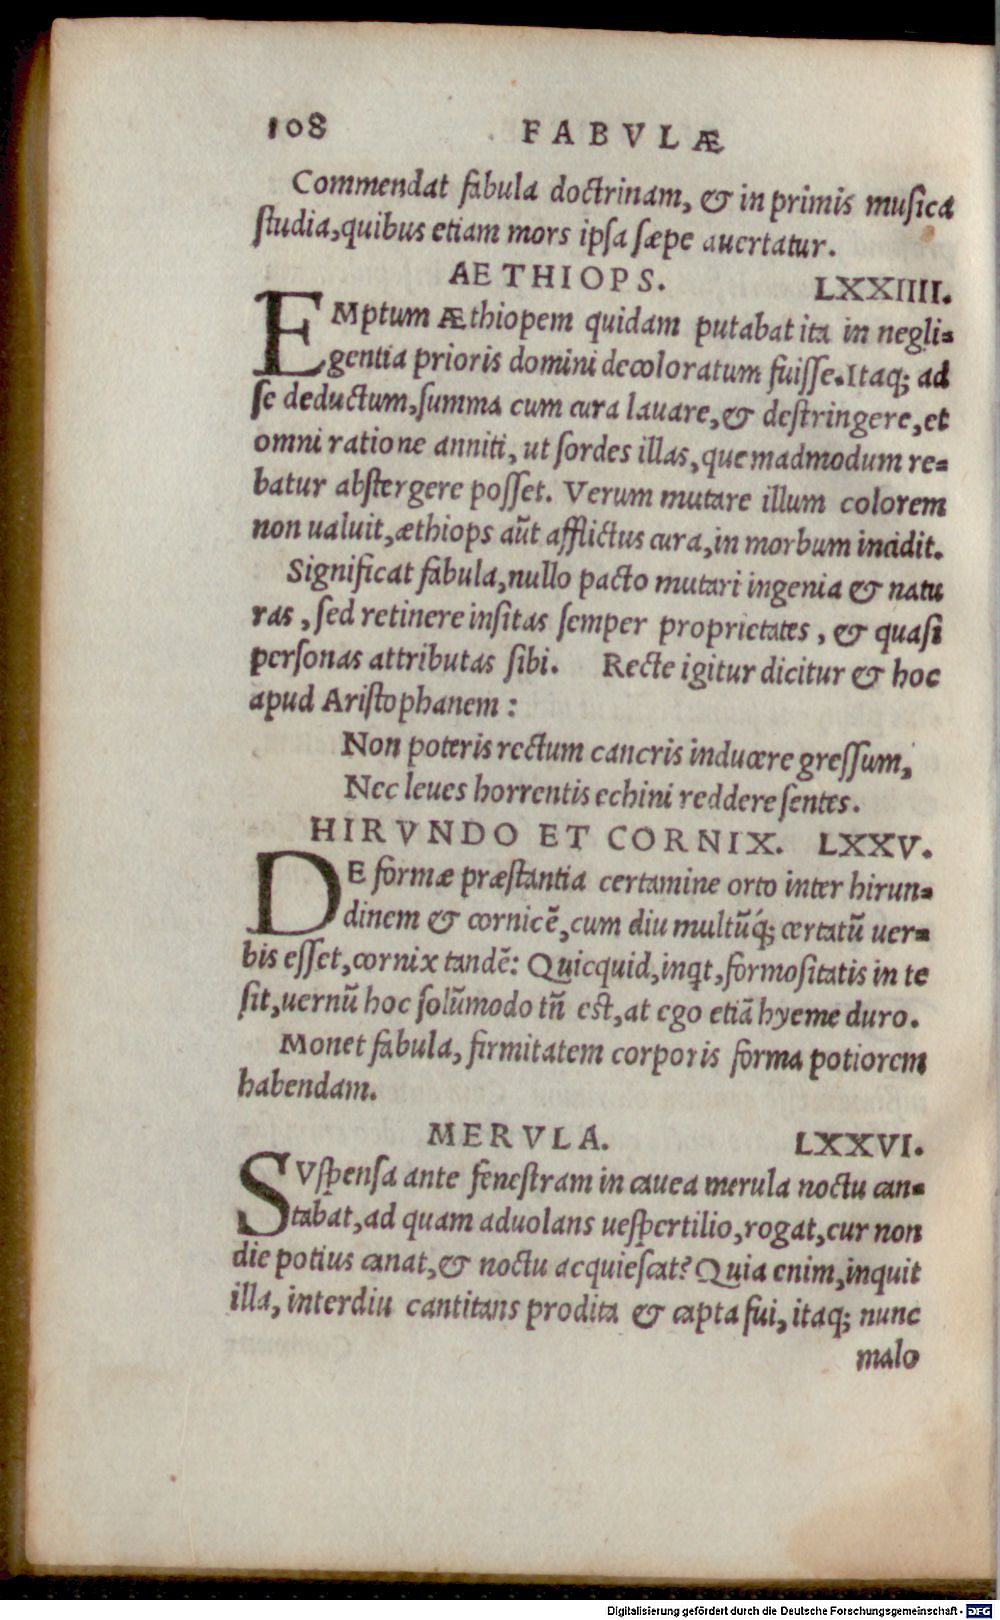 108 FABVLÆ
Commendat fabula doctrinam, & in primis musica
studia, quibus etiam mors ipsa sæpe auertatur.
AETHIOPS. LXXIIII.
EMptum Æthiopem quidam putabat ita in negli-
gentia prioris domini decoloratum fuisse. Itaq; ad
se deductum, summa cum cura lauare, & destringere, et
omni ratione anniti, ut sordes illas, quemadmodum re-
batur abstergere posset. Verum mutare illum colorem
non ualuit, æthiops aūt afflictus cura, in morbum incidit.
Significat fabula, nullo pacto mutari ingenia & natu
ras, sed retinere insitas semper proprietates, & quasi
personas attributas sibi. Recte igitur dicitur & hoc
apud Aristophanem:
Non poteris rectum cancris inducere gressum,
Nec leues horrentis echini reddere sentes.
HIRVNDO ET CORNIX. LXXV.
DE formæ præstantia certamine orto inter hirun-
dinem & cornicē, cum diu multūq́; certatū uer-
bis esset, cornix tandē: Quicquid, inqt, formositatis in te
sit, uernū hoc solūmodo tñ est, at ego etiā hyeme duro.
Monet fabula, firmitatem corporis forma potiorem
habendam.
MERVLA. LXXVI.
SVspensa ante fenestram in cauea merula noctu can-
tabat, ad quam aduolans uespertilio, rogat, cur non
die potius canat, & noctu acquiescat? Quia enim, inquit
illa, interdiu cantitans prodita & capta fui, itaq; nunc
malo
Digitalisierung gefördert durch die Deutsche Forschungsgemeinschaft - DFG